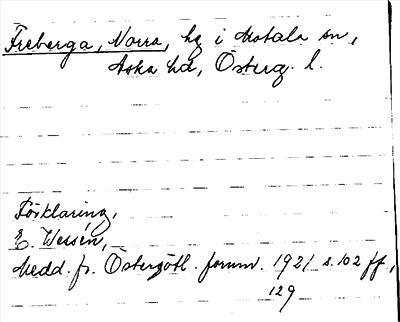 Freberga, Norra, hg i Motala sn,
Aska hd, Österg. l.
Förklaring,
E. Wessén,
Medd. fr. Östergötl. fornm. 1921 s. 102 ff.,
129